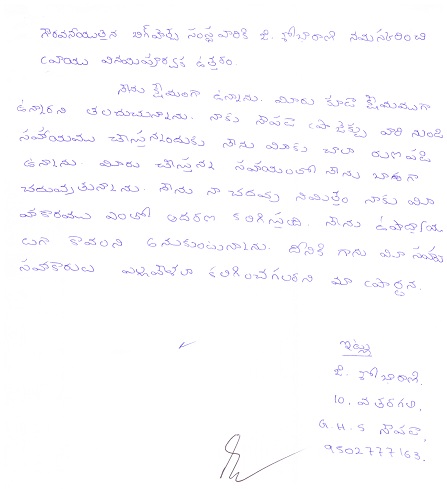 గౌరవనీయులైన బిగ్ హెల్ప్ సంస్థ వారికి జి. శోభారాణి నమస్కరించి
వ్రాయు వినయపూర్వక ఉత్తరం.
నేను క్షేమంగా ఉన్నాను. మీరు కూడా క్షేమముగా
ఉన్నారని తలచుచున్నాను. నాకు నౌపడ ప్రాజెక్టు వారి నుండి
సహాయము చేస్తున్నందుకు నేను మీకు చాలా రుణపడి
ఉన్నాను. మీరు చేస్తున్న సహాయంతో నేను బాగుగా
చదువుతున్నాను. నేను నా చదువు నిమిత్తం నాకు మీ
సహకారము ఎంతో ఆదరణ కలిగిస్తుంది. నేను ఉపాధ్యాయ
లుగా కావాలని అనుకుంటున్నాను. దీనికి గాను మీ సహాయ
సహకారులు ఎల్లవేళలా కలిగించగలరని మా ప్రార్థన.
ఇట్లు
జి. శోభారాణి,
10, వ తరగతి,
G.H.S నౌపడ,
9502777163.